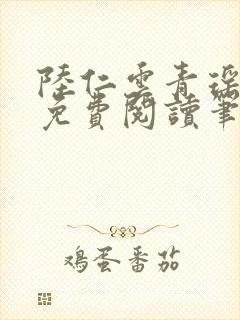 陸仁雲青瑤
免費閱讀筆
鸡蛋番茄